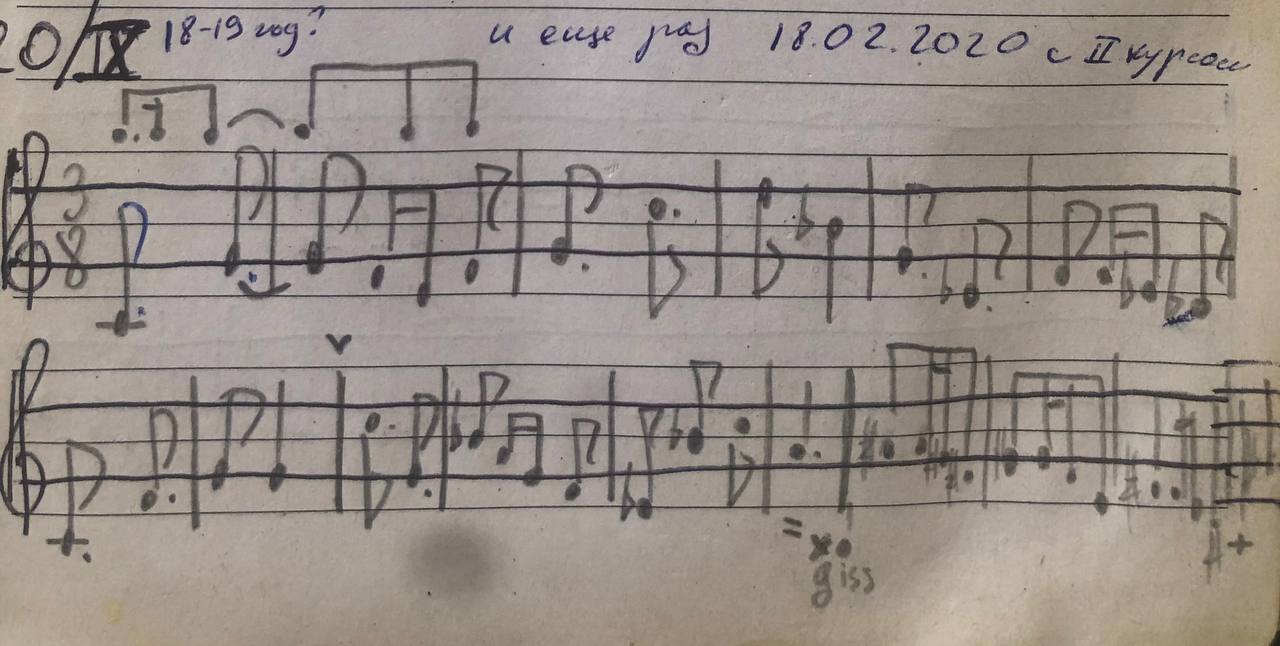 20/IX 18-19 год? и еще раз 18.02.2020 с II курсом
3
8
= x
giss
A+